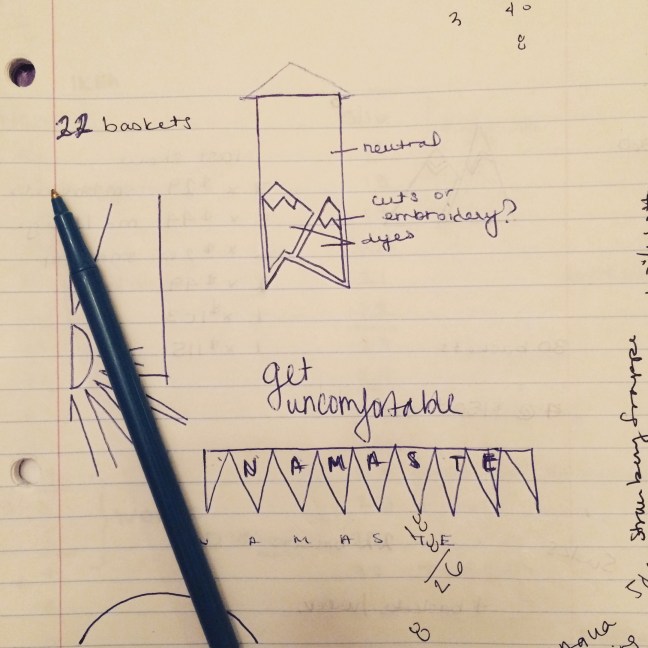 3 40
8
22 baskets
neutral
cuts or
embroidery?
dyes
get
uncomfortable
N A M A S T E
A M A S T E
18
26
8
Strawberry frappe